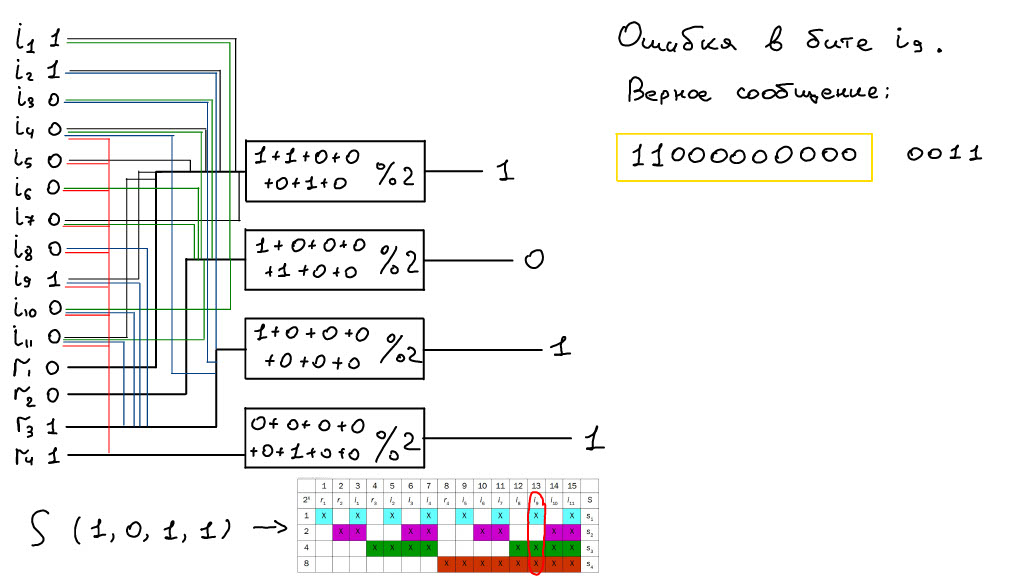 i1 1
i2 1
i3 0
i4 0
i5 0
i6 0
i7 0
i8 0
i9 1
i10 0
i11 0
r1 0
r2 0
r3 1
r4 1
1+1+0+0
+0+1+0 %2
1
1+0+0+0
+1+0+0 %2
0
1+0+0+0
+0+0+0 %2
1
0+0+0+0
+0+1+0+0 %2
1
Ошибка в бите i9.
Верное сообщение:
11000000000 0011
S (1,0,1,1) →
1 2 3 4 5 6 7 8 9 10 11 12 13 14 15
2^x r1 r2 i1 r3 i2 i3 i4 r4 i5 i6 i7 i8 i9 i10 i11 S
1 X X X X X X X X s1
2 X X X X X X X X s2
4 X X X X X X X X s3
8 X X X X X X X X s4